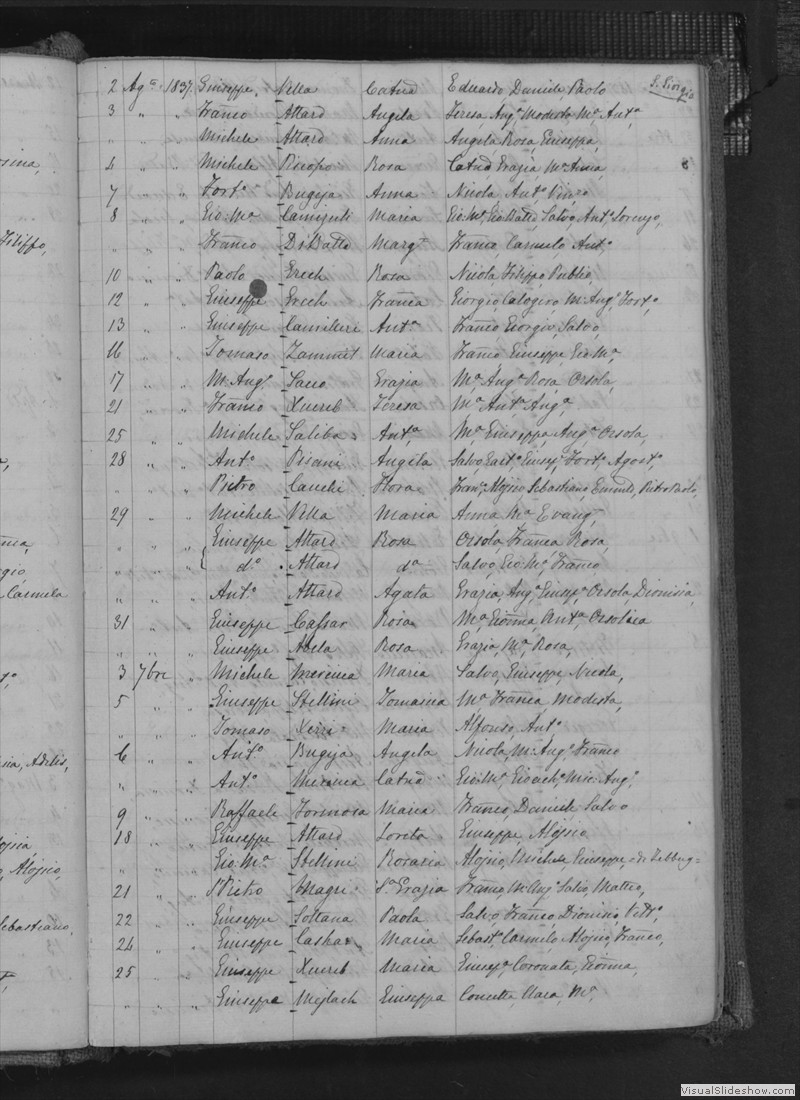 S. Giorgio
2 Agto 1837. Giuseppe, Vella Catna Eduardo Daniele Paolo
3 " " Franco Attard Angela Teresa, Anga, Modesta, Ma, Anta,
" " " Michele Attard Anna Angela Rosa, Giuseppa,
4 " " Michele Piscopo Rosa Catna Grazia, Ma Anna 8
7 " " Forto Bugeja Anna Nicola, Anto, Vinzo
8 " " Gio: Ma Camijuli Maria Gio: Ma, Gio Batta, Salvo, Anto, Lorenzo,
" " " Franco Di Batto Marga Franco, Carmelo, Anto,
10 " " Paolo Grech Rosa Nicola, Filippo Publio
12 " " Giuseppe Grech Franca Giorgio, Calogero M: Ango, Forto,
13 " " Giuseppe Camilleri Anta Franco Giorgio, Salvo,
16 " " Tomaso Zammit Maria Franco Giuseppe Gio Ma,
17 " " M: Angl. Sacco Grazia Ma, Anga, Rosa, Orsola,
21 " " Franco Xuereb Teresa Ma, Anta, Anga,
25 " " Michele Saliba Anta Ma, Giuseppa, Anga, Orsola,
28 " " Anto Pisani Angela Salvo, Gaeto, Giusep, Forto, Agosto,
" " " Pietro Cauchi Flora Fran, Alojsio Sebastiano, Pietro Paolo,
29 " " Michele Vella Maria Anna Ma Evang,
" " " Giuseppe Attard Rosa Orsola, Franca Rosa,
" do Attard da Salvo, Gio: Ma, Franco
" " " Anto Attard Agata Grazia, Anga, Giusepa, Orsola, Dionisia,
31 " " Giuseppe Cassar Rosa Ma, Gionna Anta, Orsolica
" " " Giuseppe Abela Rosa Grazia, Ma, Rosa,
3 7bre " Michele Mercieca Maria Salvo, Giuseppe Nicola,
5 " " Giuseppe Stellini Tomasina Ma Franca, Modesta,
" " " Tomaso Xerri Maria Alfonso, Anto
6 " " Anto Bugeja Angela Nicola, M: Ango, Franco
" " " Anto Mercieca Catna Gio: Ma, Mic: Ang,
9 " " Raffaele Formosa Maria Franco, Daniele Salvo
18 " " Giuseppe Attard Loreta Giuseppe Alojsio
" " " Gio: Ma Stellini Rosaria Alojsio, Michele Giuseppe, di Zebbug=
21 " " Pietro Magri Grazia Franco, M: Ang, Salvo, Matteo,
22 " " Giuseppe Soltana Paola Salvo Franco Dionisio, Vitto,
24 " " Giuseppe Cashar Maria Sebasto, Carmelo, Alojsio, Franco,
25 " " Giuseppe Xuereb Maria Giusepa, Coronata, Gionna,
" " " Giuseppe Mejlach Giuseppa Concetta, Clara, Ma,
VisualSlideshow.com